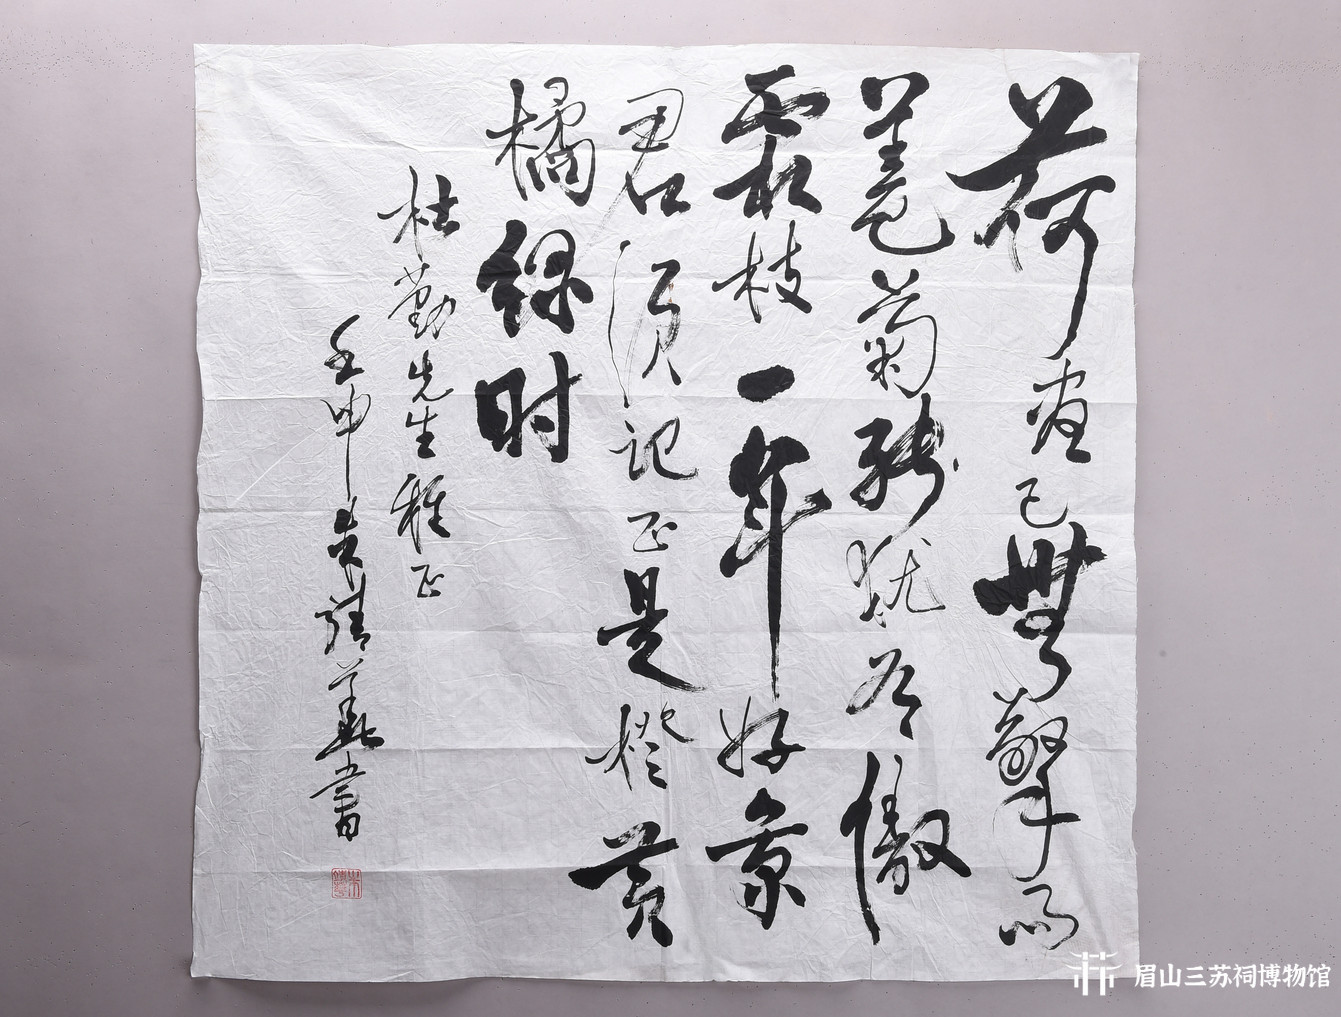 荷尽已無擎雨
盖菊残犹有傲
霜枝一年好景
君须记正是橙黄
橘绿时
杜勤先生雅正
壬申
书
眉山三苏祠博物馆